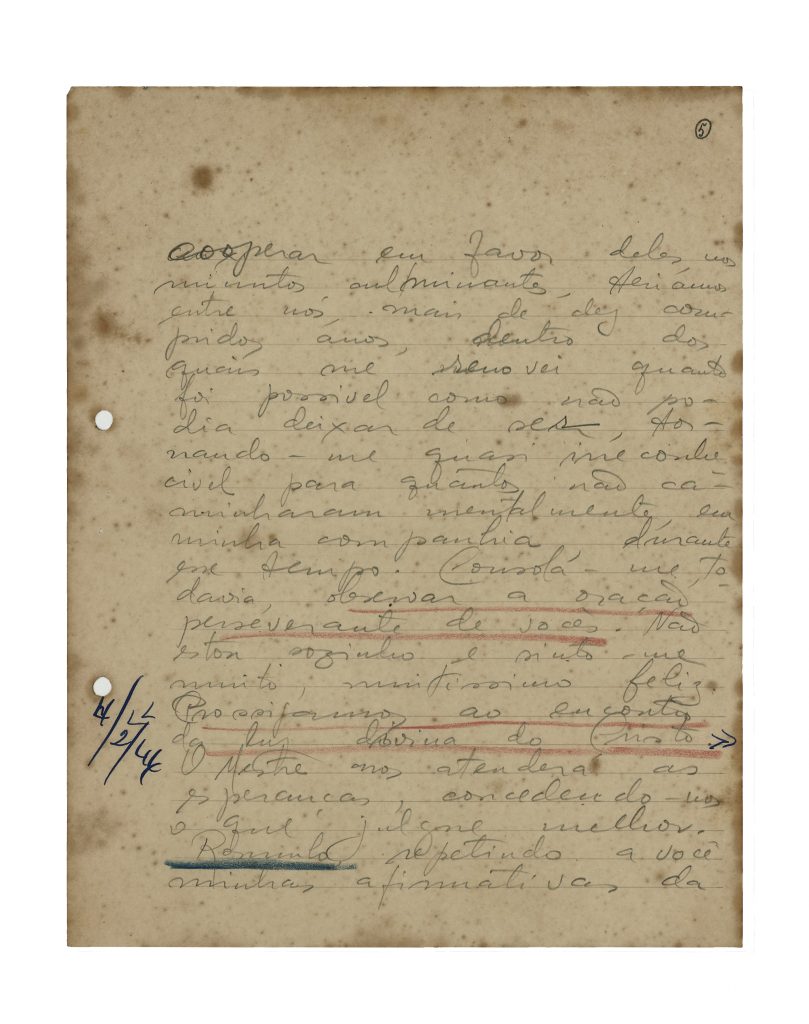 5
cooperar em favor deles nos
minutos culminantes, teriamos
entre nós, mais de dez com-
pridos anos, dentro dos
quais me renovei quanto
foi possivel como não po-
dia deixar de ser, tor-
nando-me quasi irreconhe
civel para quantos não ca-
minharam mentalmente em
minha companhia durante
esse tempo. Consola-me, to
davia, observar a oração
perseverante de vocês. Não
estou sozinho e sinto-me
muito, muitissimo feliz.
Prossigamos ao encontro
da luz divina do Cristo
O Mestre nos atenderá as
esperanças, concedendo-nos
o que julgue melhor.
Romulo, repetindo a você
minhas afirmativas da
2/46